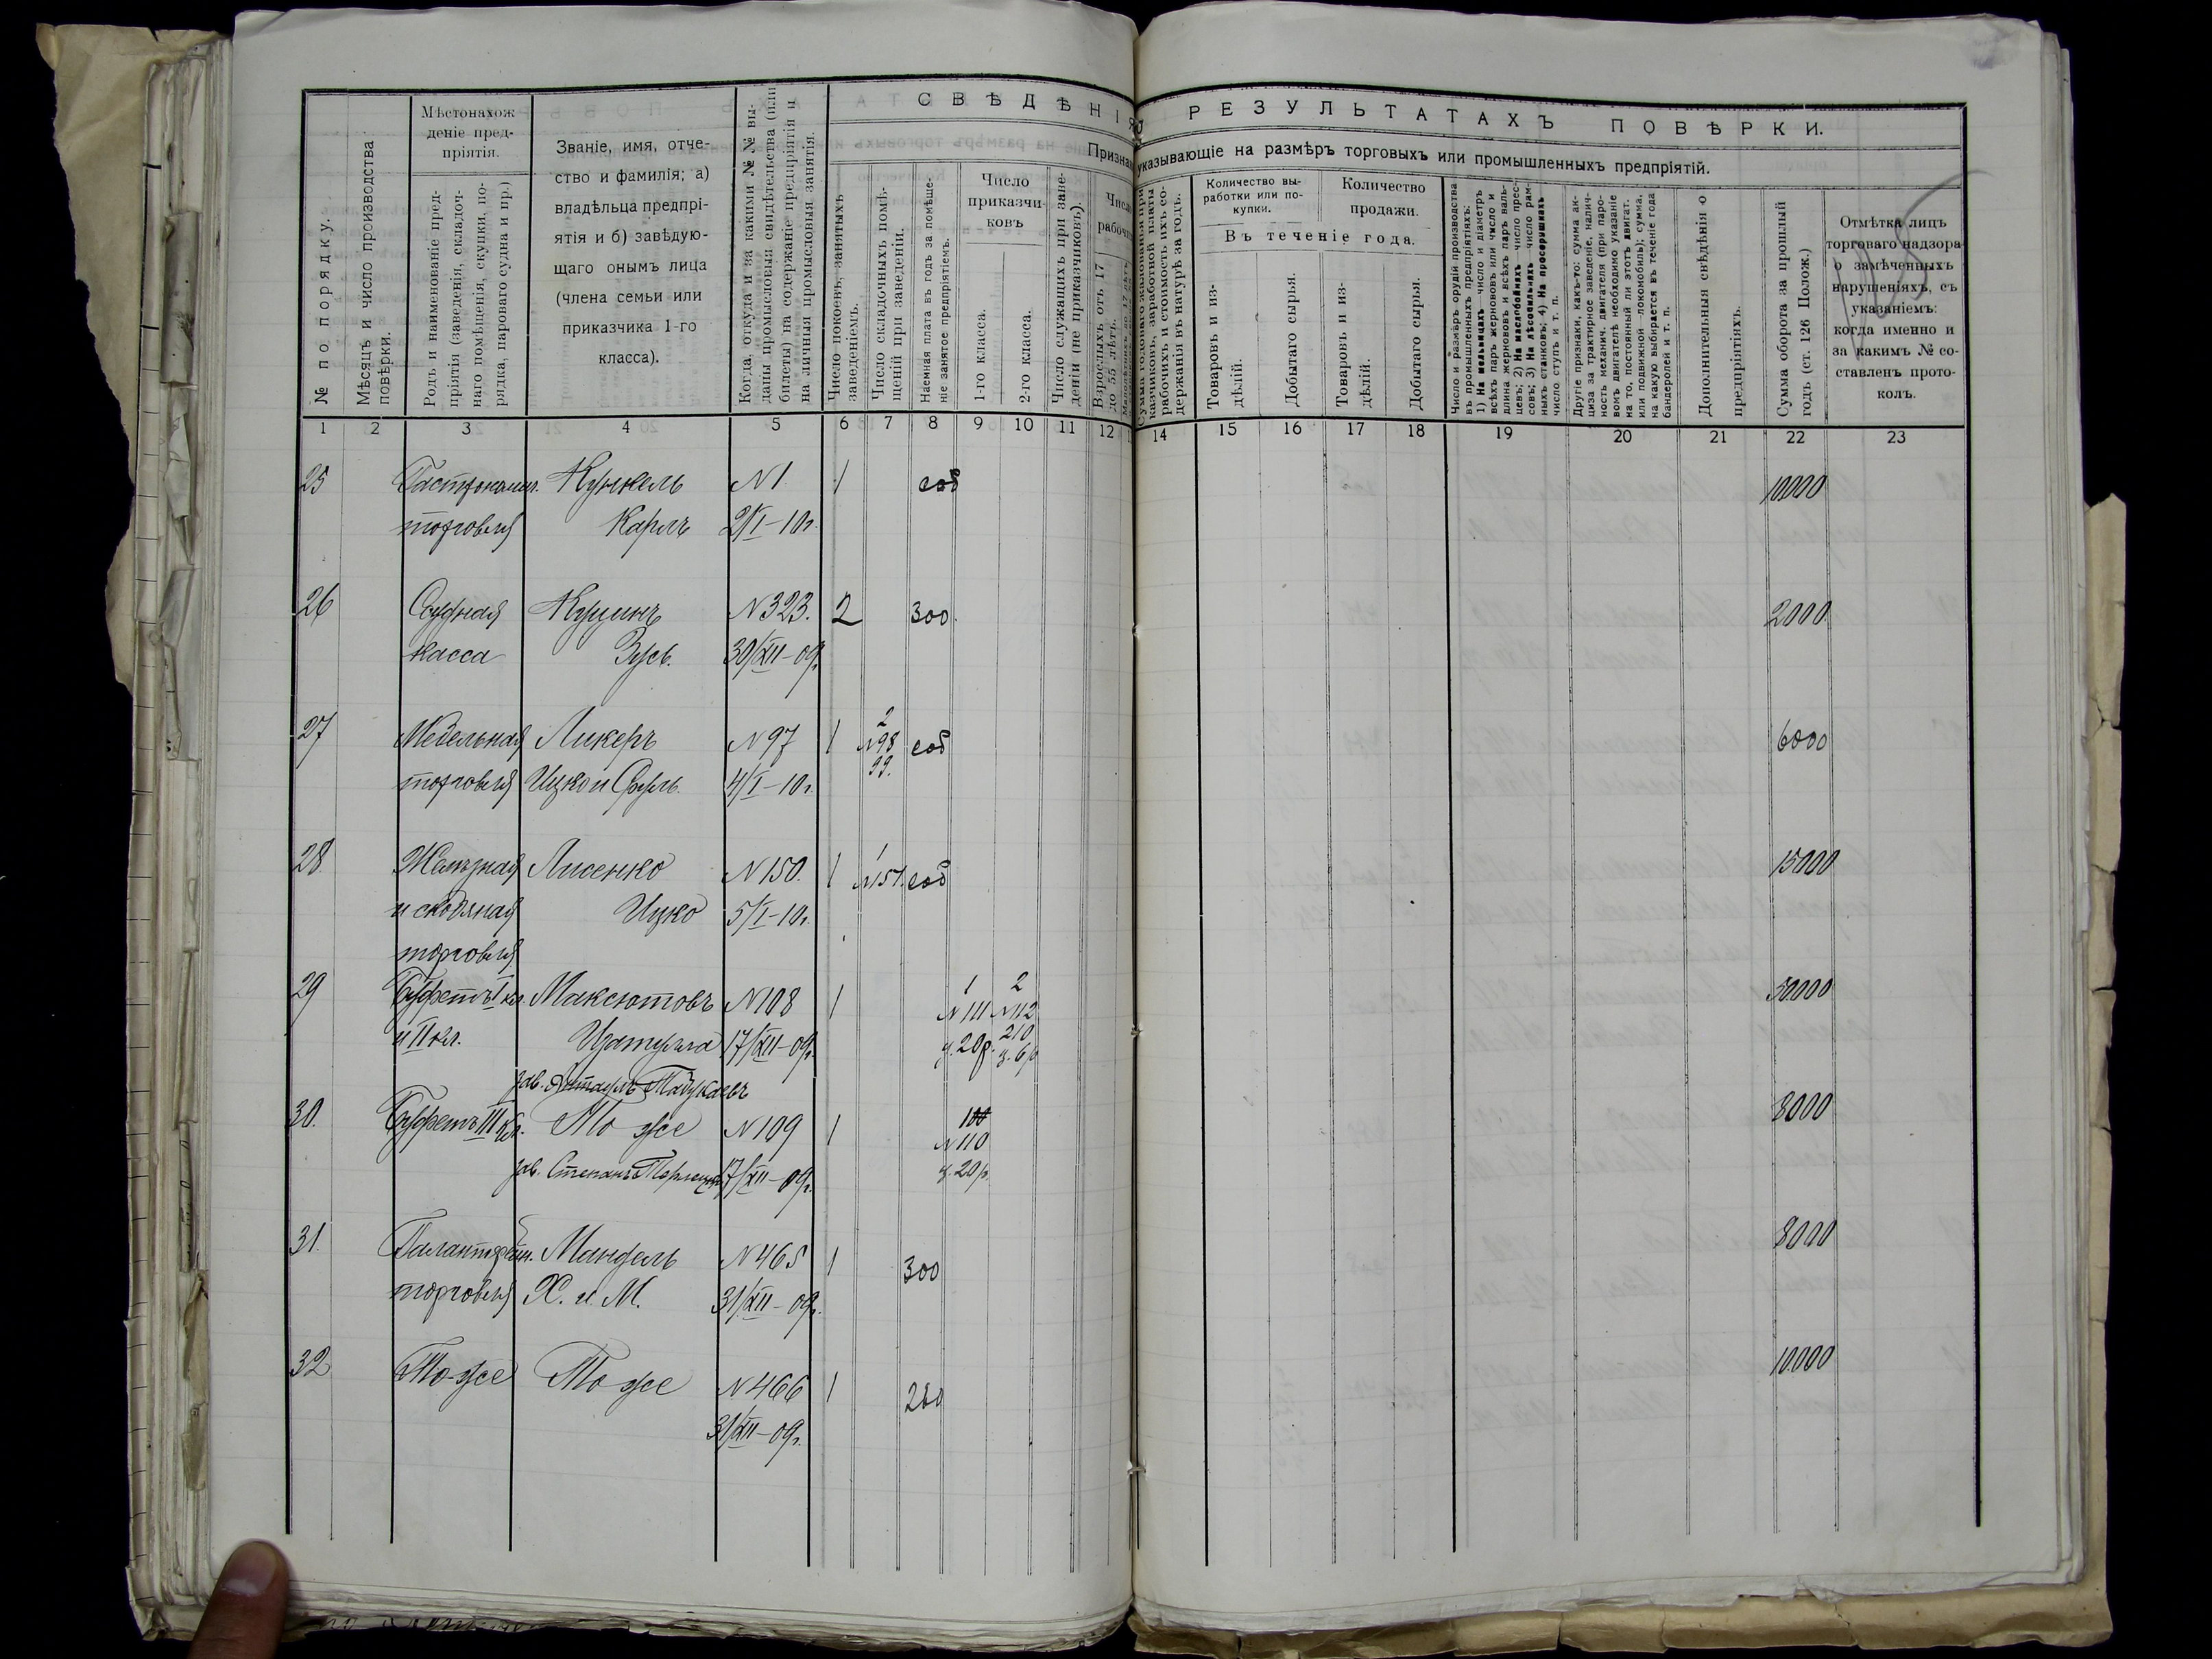 СВѢДѢНІЯ О РЕЗУЛЬТАТАХЪ ПОВѢРКИ.
Признаки, указывающіе на размѣръ торговыхъ или промышленныхъ предпріятій.
№ по порядку.
Мѣсяцъ и число производства
повѣрки.
Мѣстонахож
деніе пред-
пріятія.
Родъ и наименованіе пред-
пріятія (заведенія, складоч-
наго помѣщенія, скупки, по-
рядка, парового судна и пр.)
Званіе, имя, отче-
ство и фамилія; а)
владѣльца предпрі-
ятія и б) завѣдую-
щаго онымъ лица
(члена семьи или
приказчика 1-го
класса).
Когда, откуда и за какими № № вы-
даны промысловыя свидѣтельства (или
билеты) на содержаніе предпріятія и
на личныя промысловыя занятія.
Число покоевъ, занятыхъ
заведеніемъ.
Число складочныхъ помѣ-
щеній при заведеніи.
Наемная плата въ годъ за помѣще-
ніе занятое предпріятіемъ.
Число
приказчи-
ковъ
1-го класса.
2-го класса.
Число служащихъ при заве-
деніи (не приказчиковъ).
Число
рабочихъ
Взрослыхъ отъ 17
до 55 лѣтъ.
Сумма годового жалованья при-
казчиковъ, заработной платы
рабочихъ и стоимость ихъ со-
держанія въ натурѣ за годъ.
Количество вы-
работки или по-
купки.
Количество
продажи.
Въ теченіе года.
Товаровъ и из-
дѣлій.
Добытаго сырья.
Товаровъ и из-
дѣлій.
Добытаго сырья.
Число и размѣръ орудій производства
въ промышленныхъ предпріятіяхъ:
1) На мельницахъ—число и діаметръ
всѣхъ паръ жернововъ или число и
длина жернововъ и всѣхъ паръ валь-
цевъ; 2) На маслобойняхъ—число прес-
совъ; 3) На лѣсопильняхъ—число рам-
ныхъ станковъ; 4) На просорушняхъ
число ступъ и т. п.
Другіе признаки, какъ-то: сумма ак-
циза за трактирное заведеніе, налич-
ность механич. двигателя (при паро-
вомъ двигателѣ необходимо указаніе
на то, постоянный ли этотъ двигат.
или подвижной—локомобиль); сумма,
на какую выбирается въ теченіе года
бандеролей и т. п.
Дополнительныя свѣдѣнія о
предпріятіяхъ.
Сумма оборота за прошлый
годъ (ст. 126 Полож.)
Отмѣтка лицъ
торговаго надзора
о замѣченныхъ
нарушеніяхъ, съ
указаніемъ:
когда именно и
за какимъ № со-
ставленъ прото-
колъ.
1 2 3 4 5 6 7 8 9 10 11 12 14 15 16 17 18 19 20 21 22 23
25 Гастрономич. Кункель №1. 1 соб 10000
торговля Карлъ 2/I–10г.
26 Ссудная Кушнъ №323. 2 300. 2000
касса Зусь. 30/XII–09г.
2
27 Мебельная Ликеръ №97 1 №98 соб 6000
99.
торговля Ицко и Сруль. 4/I–10г.
1
28 Желѣзная Лисенко №150. 1 №151. соб 15000
и скобяная Ицко 5/I–10г.
торговля
1 2
29 Буфетъ I кл. Максютовъ №108 1 №111 №112 50.000
и II кл. 17/XII–09г. ж. 20р. 210
зав.
30. Буфетъ III кл. То же №109 1 №110 8000
зав. Степанъ 17/XII–09г. ж. 20р.
31. Галантерейн. Мандель №465 1 300 8000
торговля Х. и М. 31/XII–09г.
32 То-же То же №466 1 280 10.000
31/XII–09г.